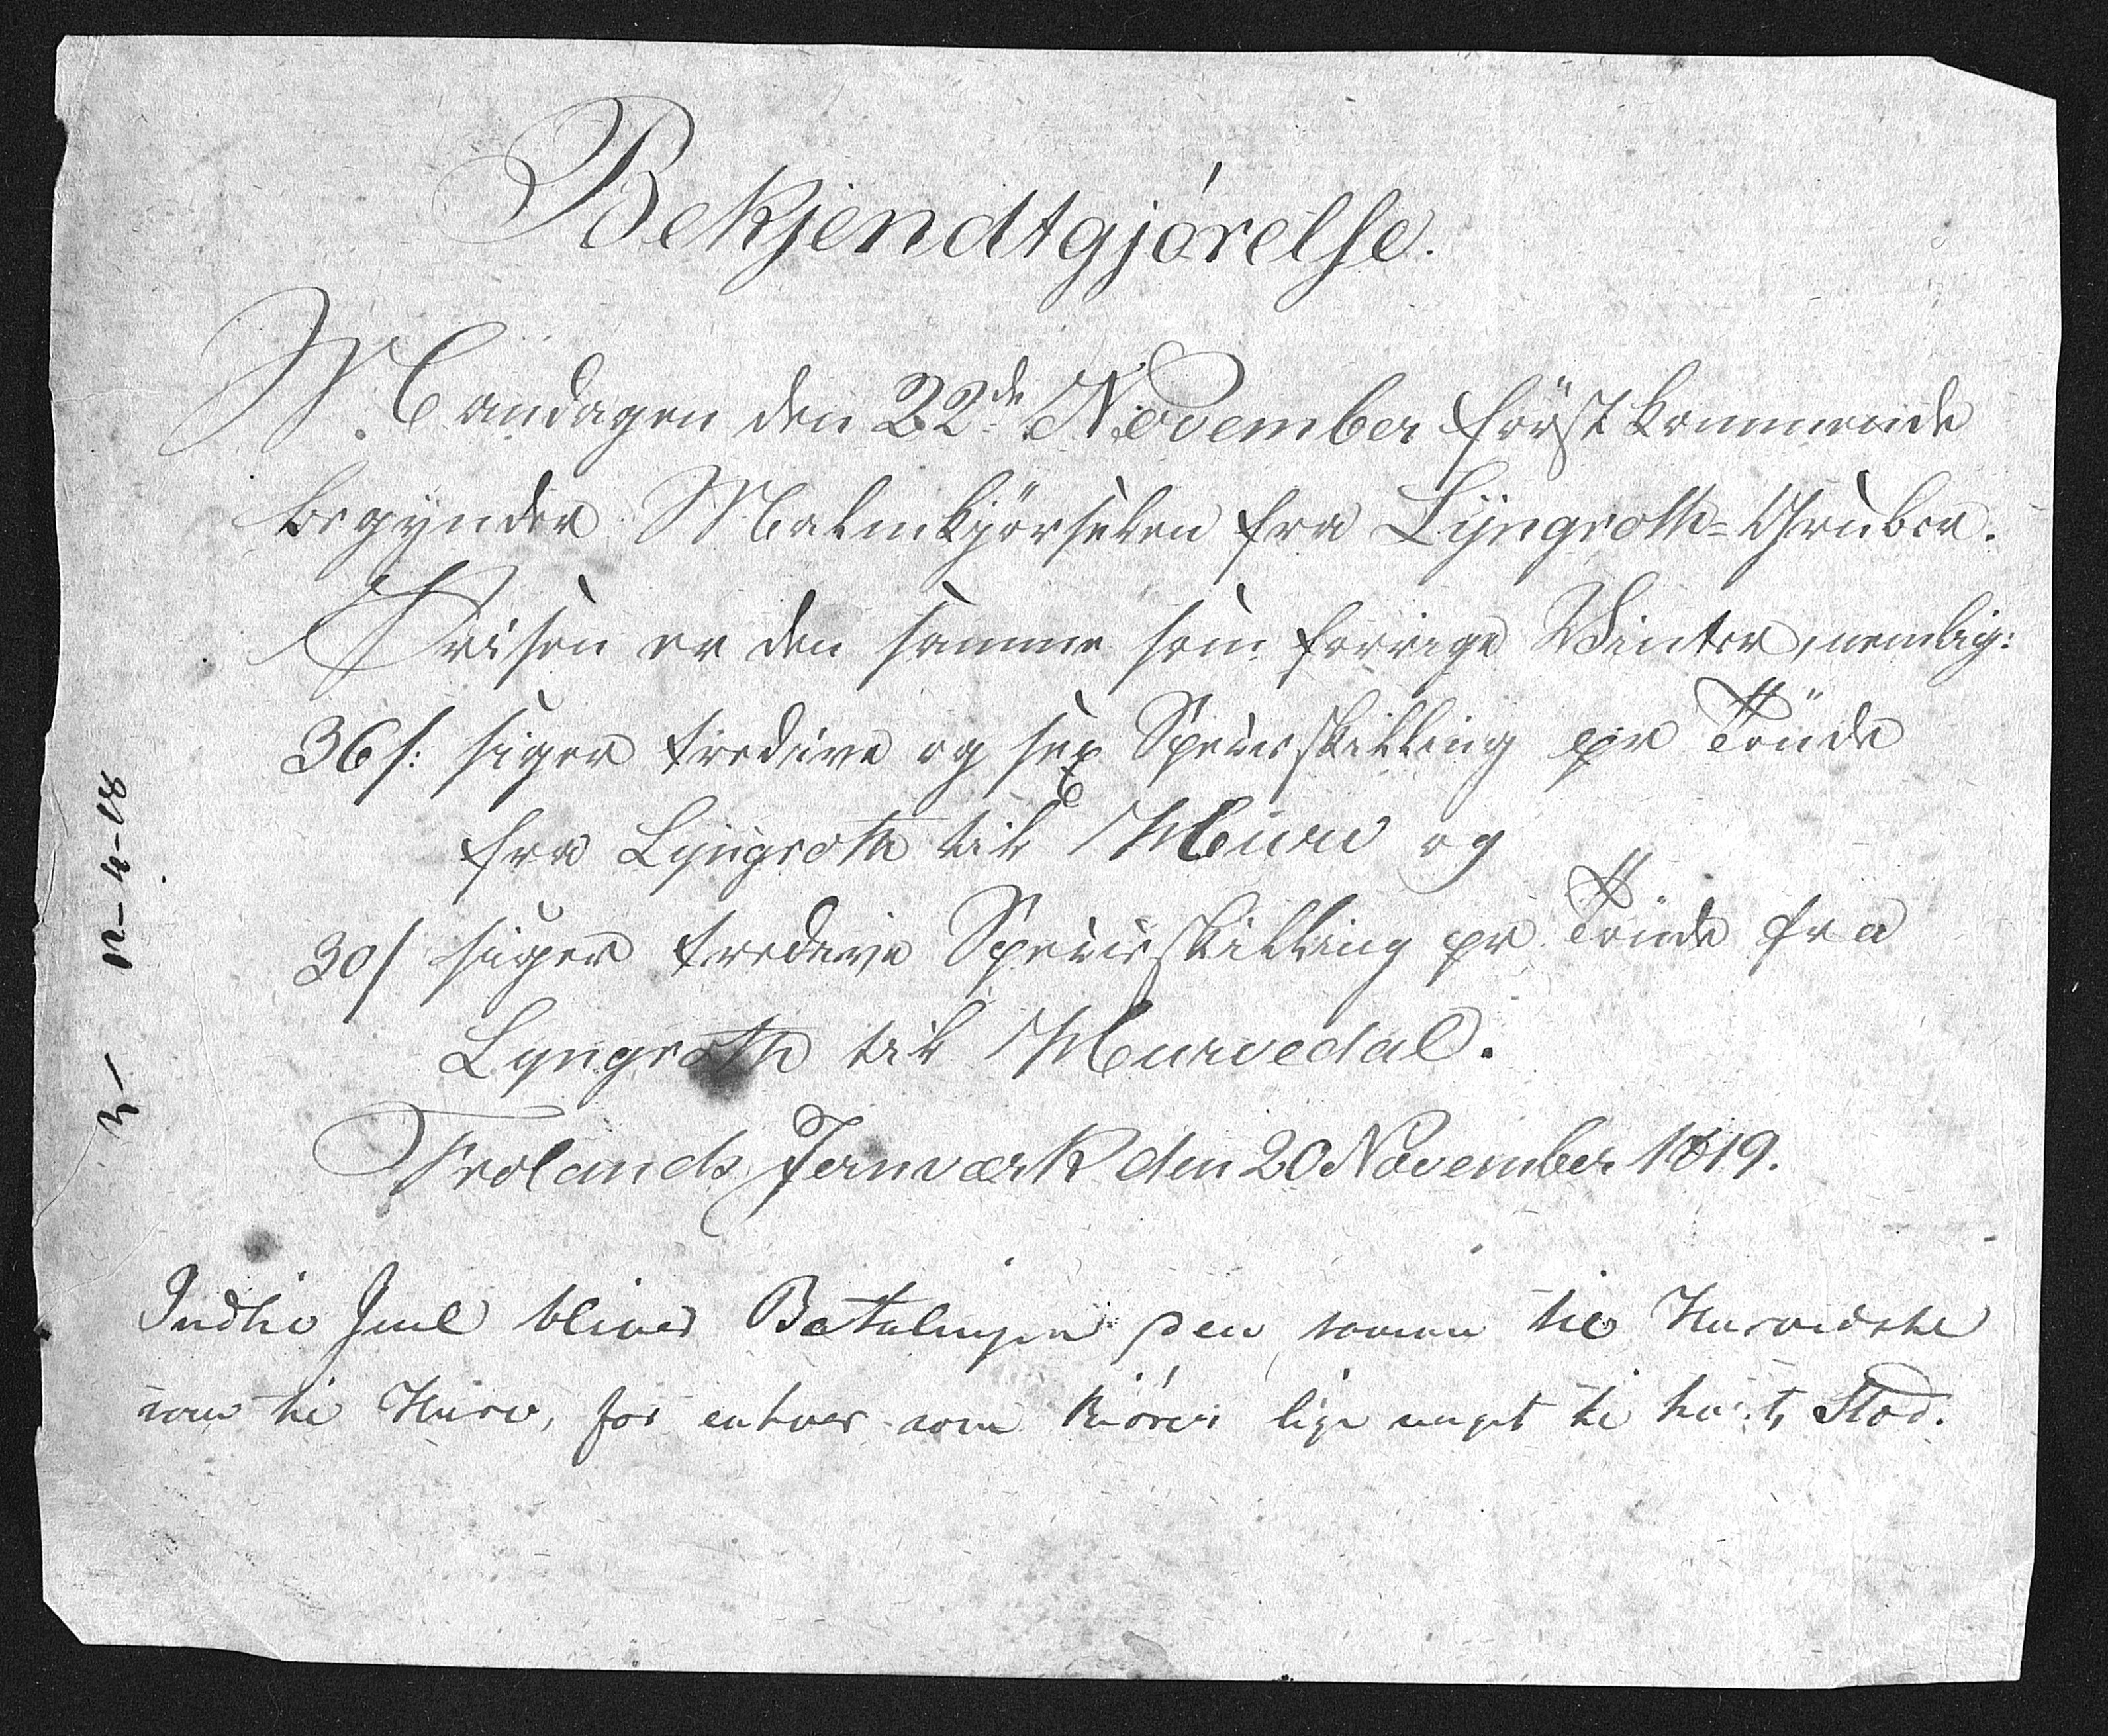 Bekjendtgjørelse.
Mandagen den 22de November förstkommende
begynder Malmkjørselen fra Lyngroth-Gruber.
Prisen er den samme som forrige Winter, nemlig:
36 s: siger tredive og sex Speciesskilling pr Tønde
fra Lyngroth til Hurv og
30 s siger tredive Speciesskilling pr Tønde fra
Lyngroth til Hurvedal.
Frolands Jernværk den 20 November 1819.
Indtil Juul bliver Betalingen den samme til
som til Hurv, for enhver som kiörer lige meget til hvert Stæd.